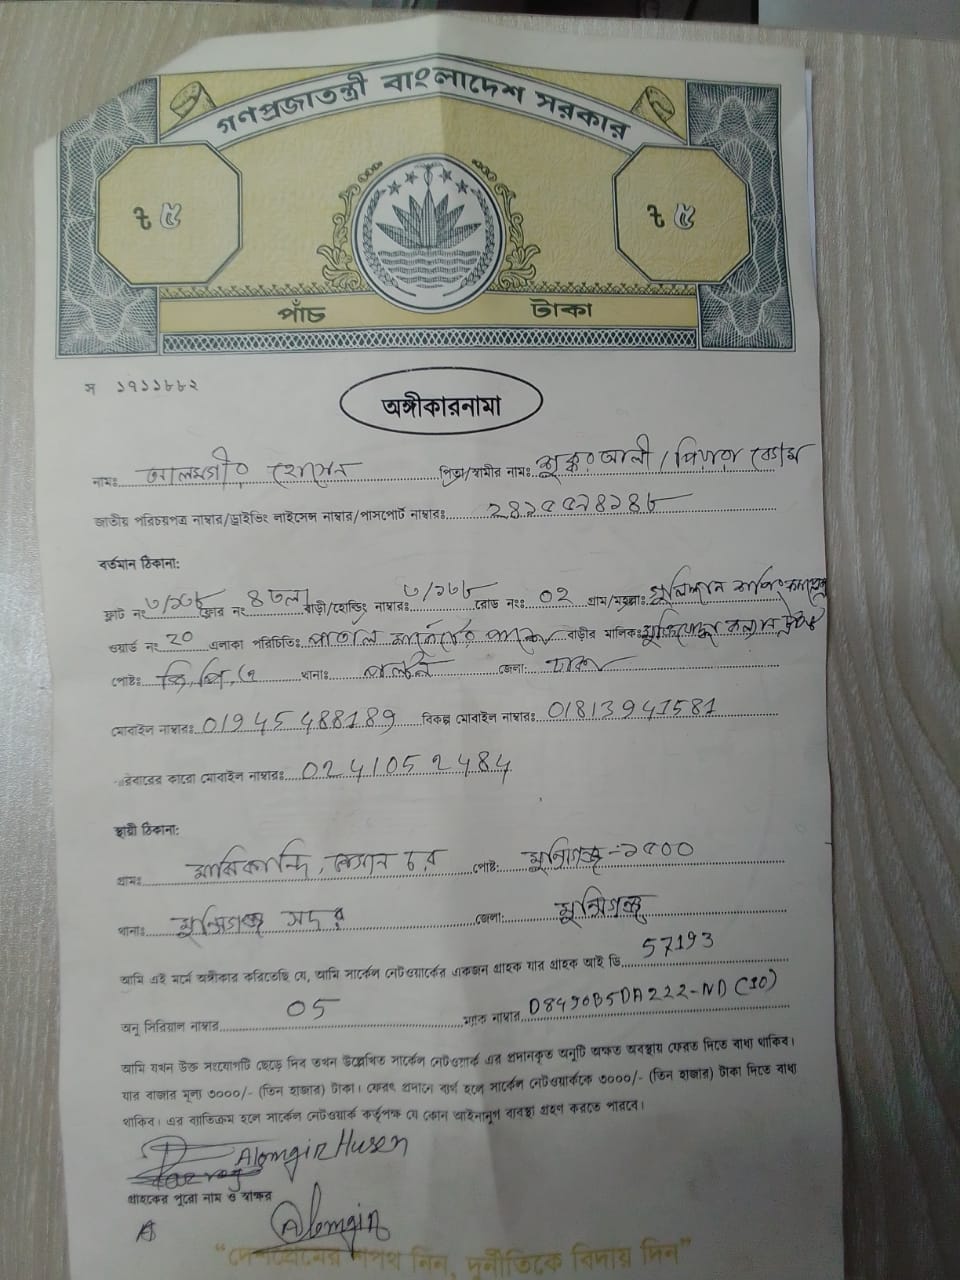 গণপ্রজাতন্ত্রী বাংলাদেশ সরকার
৳ ৫ ৳ ৫
পাঁচ টাকা
স ১৭১১৮৮২
অঙ্গীকারনামা
নামঃ আলমগীর হোসেন পিতা/স্বামীর নামঃ শুকুর আলী / পিয়ারা বেগম
জাতীয় পরিচয়পত্র নাম্বার/ড্রাইভিং লাইসেন্স নাম্বার/পাসপোর্ট নাম্বারঃ
বর্তমান ঠিকানা:
ফ্লাট নং ৩/১৬৮ ফ্লোর নং ৪ তলা বাড়ী/হোল্ডিং নাম্বারঃ ৩/১৬৮ রোড নংঃ ০২ গ্রাম/মহল্লাঃ
ওয়ার্ড নং 20 এলাকা পরিচিতিঃ বাড়ীর মালিকঃ মুক্তিযোদ্ধা কল্যান ট্রাষ্ট
পোষ্টঃ থানাঃ জেলা: ঢাকা
মোবাইল নাম্বারঃ 01945488189 বিকল্প মোবাইল নাম্বারঃ 01813941581
রবারের কারো মোবাইল নাম্বারঃ 0241052484
স্থায়ী ঠিকানা:
গ্রামঃ চর পোষ্ট: মুন্সিগঞ্জ-১৫০০
থানাঃ মুন্সিগঞ্জ সদর জেলা: মুন্সিগঞ্জ
আমি এই মর্মে অঙ্গীকার করিতেছি যে, আমি সার্কেল নেটওয়ার্কের একজন গ্রাহক যার গ্রাহক আই ডি 57193
অনু সিরিয়াল নাম্বার 05 ম্যাক নাম্বার D8490B5DA222-ND (10)
আমি যখন উক্ত সংযোগটি ছেড়ে দিব তখন উল্লেখিত সার্কেল নেটওয়ার্ক এর প্রদানকৃত অনুটি অক্ষত অবস্থায় ফেরত দিতে বাধ্য থাকিব।
যার বাজার মূল্য ৩০০০/- (তিন হাজার) টাকা। ফেরৎ প্রদানে ব্যর্থ হলে সার্কেল নেটওয়ার্ককে ৩০০০/- (তিন হাজার) টাকা দিতে বাধ্য
থাকিব। এর ব্যাতিক্রম হলে সার্কেল নেটওয়ার্ক কর্তৃপক্ষ যে কোন আইনানুগ ব্যবস্থা গ্রহণ করতে পারবে।
Alomgir Husen
গ্রাহকের পুরো নাম ও স্বাক্ষর
Alomgir
“দেশপ্রেমের শপথ নিন, দুর্নীতিকে বিদায় দিন”